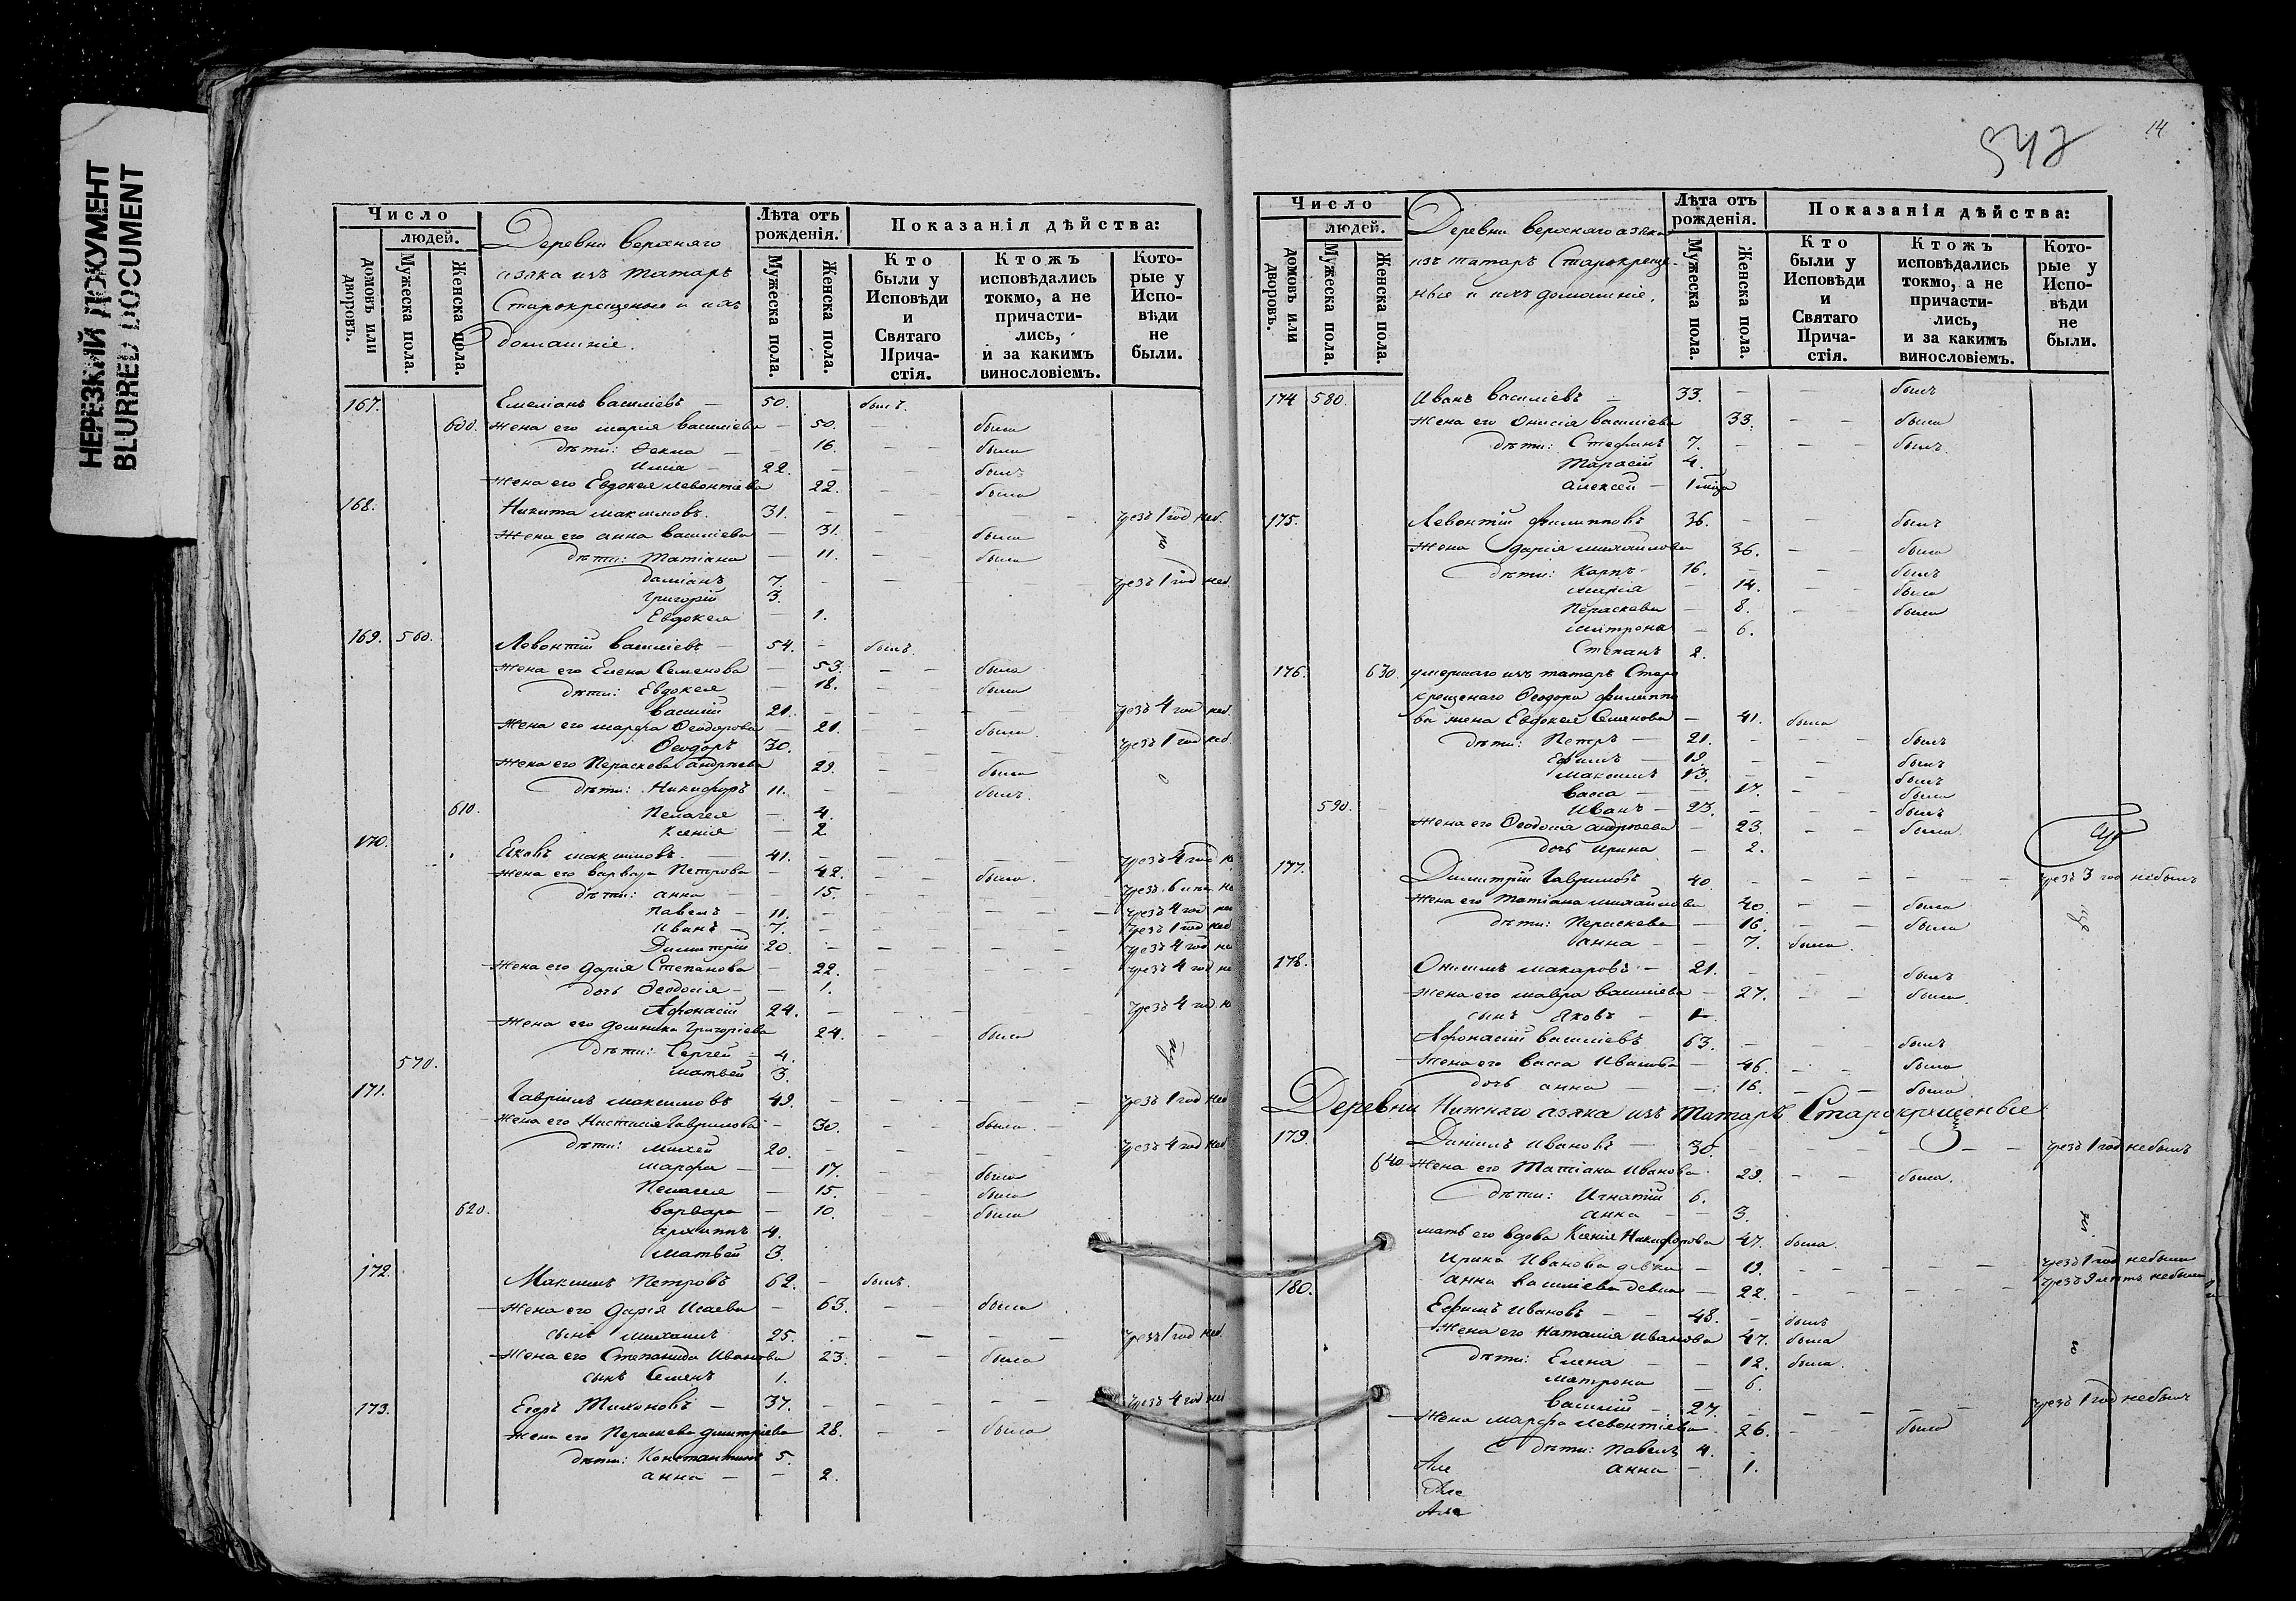 НЕРЕЗКИЙ ДОКУМЕНТ
BLURRED DOCUMENT
Число
людей.
домовъ или дворовъ.
Мужеска пола.
Женска пола.
Деревни верхняго
азяка изъ татаръ
Старокрещеные и ихъ
домашніе.
Лѣта отъ рожденія.
Мужеска пола.
Женска пола.
Показанія дѣйства:
Кто были у Исповѣди и Святаго Прича-стія.
Ктожъ исповѣдались токмо, а не причасти-лись, и за какимъ винословіемъ.
Кото-рые у Испо-вѣди не были.
167. Емеліанъ Васильевъ — 50. былъ.
600. жена его марія васильева — 50. — была
дѣти: Фекла — — 16. — — была
Илія — 22. — былъ
жена его Евдокея левонтіева 22. — — была
168. Никита максимовъ. 31. — — — — чрезъ 1 год неб.
жена его анна васильева — 31. — — была
дѣти: Татіана — 11. — была
даміанъ 7. — — — — чрезъ 1 год неб.
григорій 3.
Евдокея — 1.
169. 560. Левонтій васильевъ — 54. — былъ.
жена его Елена Семенова — 53. — — была
дѣти: Евдокея — 18. — была
василій 21. — — — — чрезъ 4 год неб.
жена его марфа Феодорова — 21. — — была.
Феодоръ 30. — — — — чрезъ 1 год неб.
жена его Пераскева андреева 29. — — была
дѣти: Никифоръ 11. — — — былъ.
610. Пелагея — 4.
Ксенія — 2
170. Яковъ максимовъ. — 41. — — — — чрезъ 4 год н
жена его варвара Петрова — 42. — — была.
дѣти: анна — — 15. — — — чрезъ
Павелъ — 11. — — — — чрезъ 4 год не
Иванъ — 7. — — — — чрезъ 1 год неб
Димитрій 20. — — — — чрезъ 4 год не
жена его дарія Степанова — 22. — — — чрезъ 4 год не
дочь Феодосія — — 1.
Афонасій 24. — — — — чрезъ 4 год н
жена его домника григоріева 24. — — была
дѣти: Сергей — 4.
570. матвей 3.
171. Гавріилъ максимовъ 49. — — — — чрезъ 1 год неб
жена его Настасія Гаврилова — 30. — — была.
дѣти: михей 20. — — — — чрезъ 4 год неб.
марфа — — 17. — — была
Пелагея — 15. — — была
620. варвара — 10. — — была
архиппъ 4.
матвей 3.
172. Максимъ Петровъ 62. — былъ.
жена его дарія Исаева — 63. — — была
сынъ михаилъ 25. — — — — чрезъ 1 год неб.
жена его Степанида Иванова 23. — — была
сынъ Семенъ 1.
173. Егоръ Тихоновъ — 37. — — — — чрезъ 4 год неб
жена его Пераскева дмитріева 28. — — была
дѣти: Константинъ 5.
анна — — 2.
542
14
Число
людей.
домовъ или дворовъ.
Мужеска пола.
Женска пола.
Деревни верхняго азяка
изъ татаръ Старокреще-
ные и ихъ домашніе.
Лѣта отъ рожденія.
Мужеска пола.
Женска пола.
Показанія дѣйства:
Кто были у Исповѣди и Святаго Прича-стія.
Ктожъ исповѣдались токмо, а не причасти-лись, и за какимъ винословіемъ.
Кото-рые у Испо-вѣди не были.
174 580. Иванъ Васильевъ — 33. — — былъ
жена его Онисія васильева 33. — — была
дѣти: Стефанъ 7. — — — былъ.
Тарасій 4.
алексей — 1 мца
175. Левонтій Филипповъ 36. — — былъ
жена дарія михайлова 36. — — была
дѣти: Карпъ — 16. — — былъ
марія — 14. — — была
Пераскева — 8. — — была
матрона — 6.
Степанъ 2.
176. 630. умершаго изъ татаръ Старо
крещенаго Феодора филиппо
ва жена Евдокея Семенова — 41. была
дѣти: Петръ — 21. — — — былъ
Ефимъ — 19. — — былъ
максимъ 13. — — былъ
васса — — 17. — — была
590. Иванъ — 23. — — былъ
жена его Феодосія андреева — 23. — — была.
дочь ирина — 2.
177. Димитрій Гавриловъ 40. — — — — чрезъ 3 год небылъ
жена его татіана михайлова 40. — — была
дѣти: Пераскева — 16. — — была
анна — — 7. была.
178. Онисимъ макаровъ. — 21. — — былъ
жена его мавра васильева — 27. — — была.
сынъ Яковъ — 1.
Афонасій васильевъ 63. — — былъ
жена его васса Иванова — 46. — — была
дочь анна — — 16. — — была
Деревни Нижняго азяка изъ татаръ Старокрещеные
179. Даніилъ Ивановъ — 30. — — — — чрезъ 1 год небылъ
640 жена его Татіана Иванова 29. — — была.
дѣти: Игнатій 6.
анна — — 3.
мать его вдова Ксенія Никифорова 47. была.
ирина Иванова девка — 19. — — — — чрезъ 1 год небыла
анна васильева девка — 22. — — — — чрезъ 9 летъ небыла
180. Ефимъ Ивановъ — — 48. — былъ
жена его Наталия Иванова 47. была
дѣти: Елена — — 12. была.
матрона — 6.
василій — 27. — — — — чрезъ 1 год небылъ
жена марфа левонтіева — 26. — — была
дѣти: Павелъ 4. —
анна — 1.
Але
Але
Але